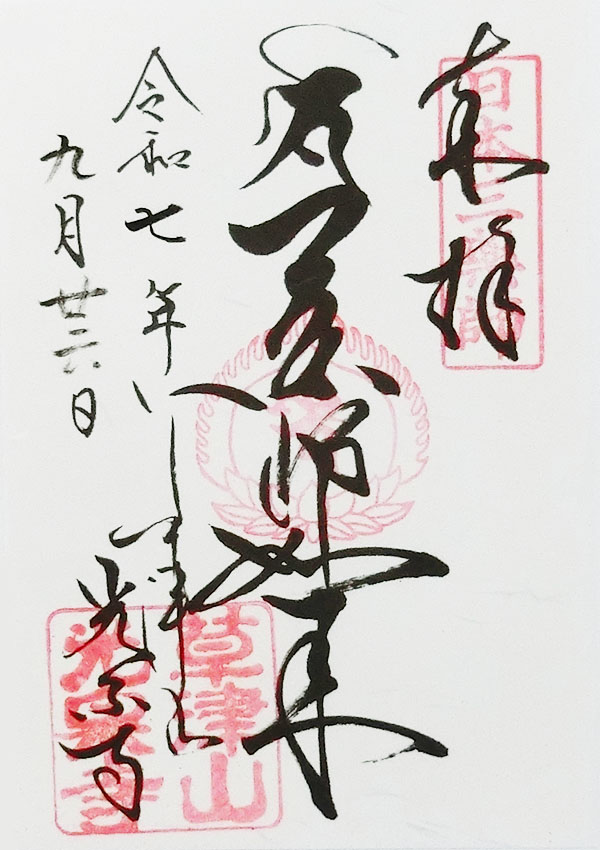 奉拝
日本三薬師
薬師如来
令和七年
九月廿六日
光泉寺
草津山
光泉寺